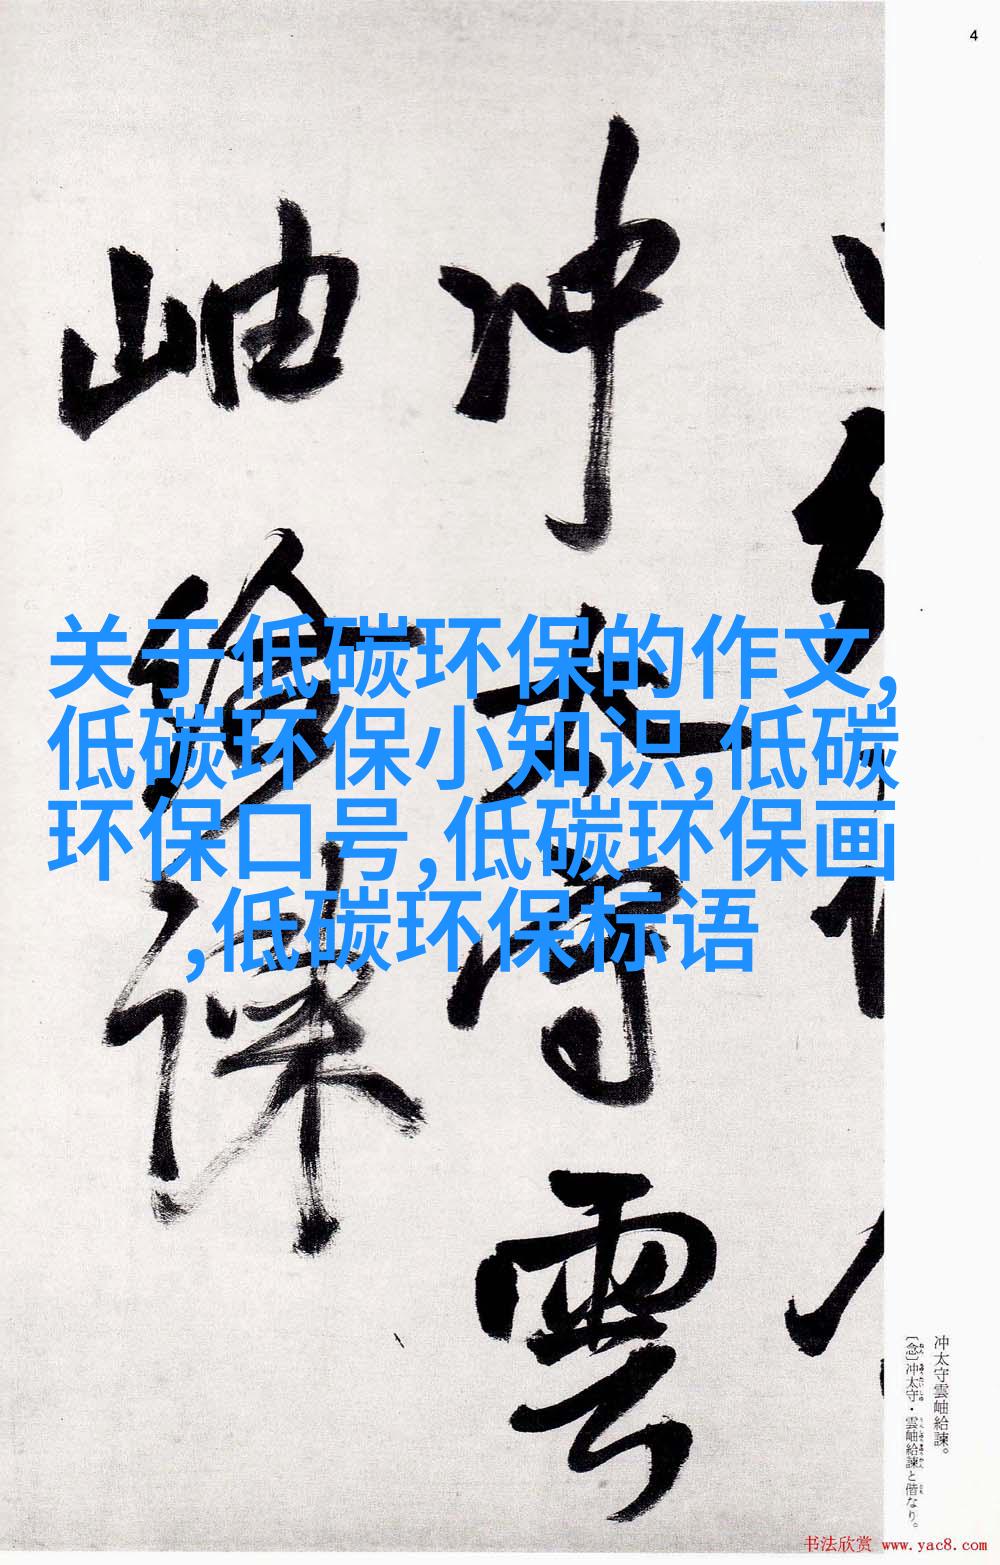 4
冲太守雲
岫給諫
关于低碳环保的作文,
低碳环保小知识,低碳
环保口号,低碳环保画
,低碳环保标语
冲太守雲岫給諫。
〔念〕冲太守・雲岫給諫と偕なり。
书法欣赏 www.yac8.com